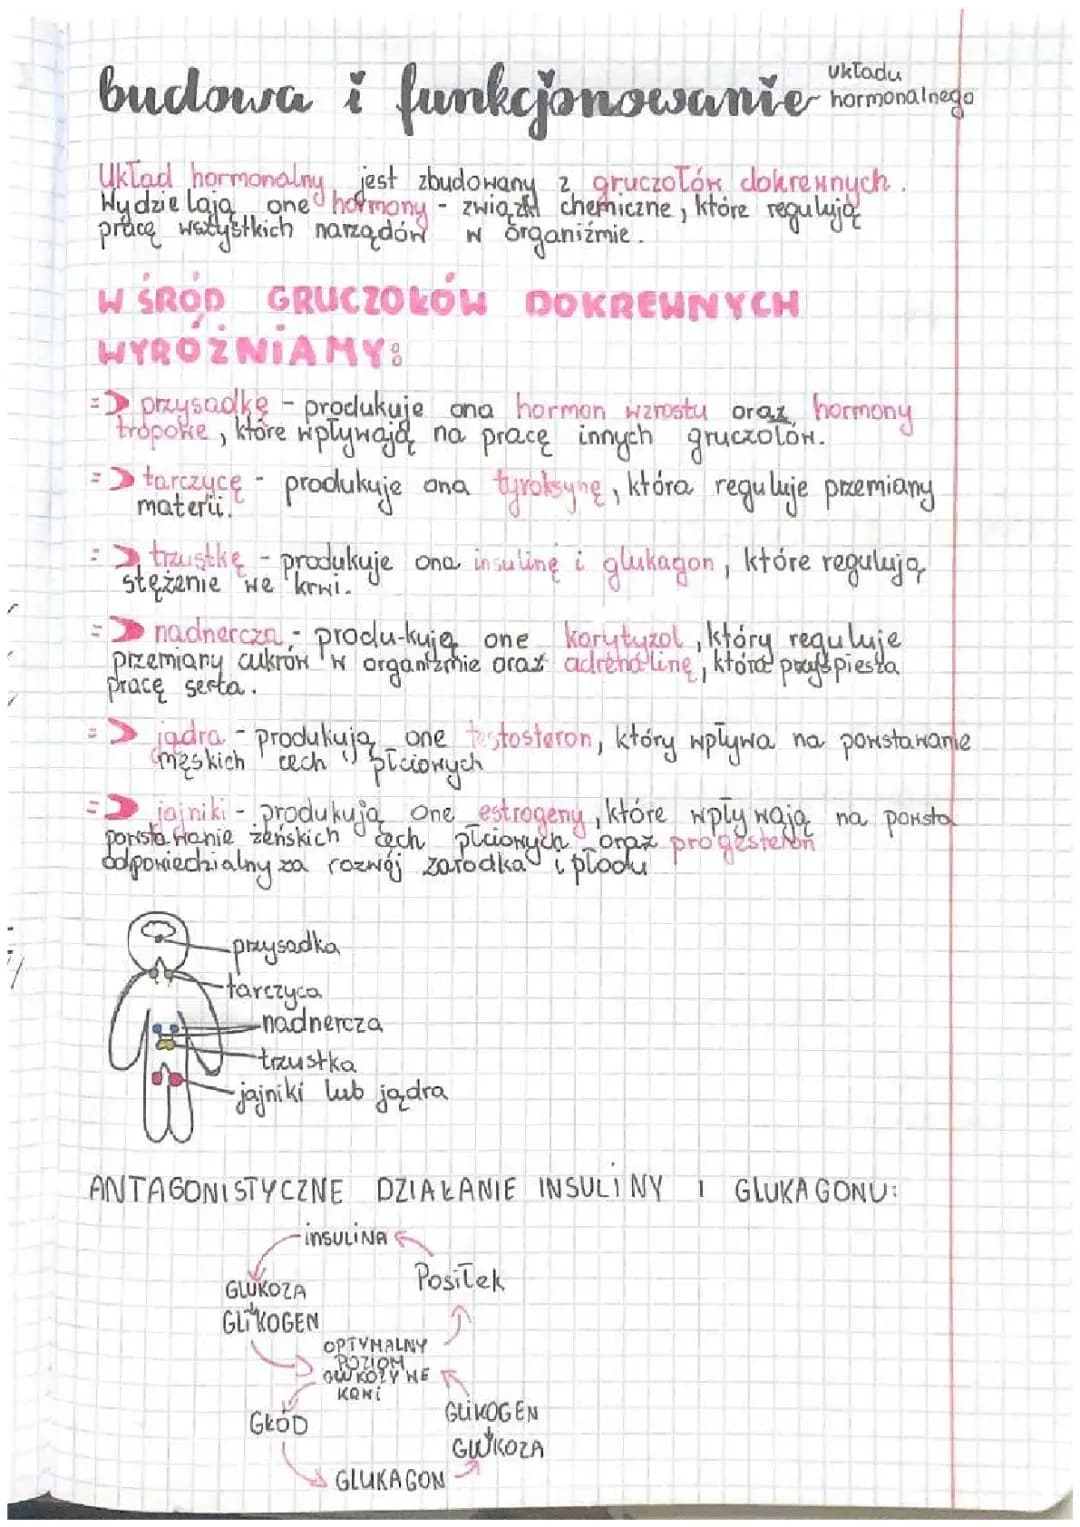 budowa i funkcjonowanie układu
hormonalnego
Układ hormonalny jest zbudowany z gruczołów dokrewnych.
Wydzielają one hormony - związki chemiczne, które regulują
pracę wszystkich narządów w organiźmie.
WŚRÓD GRUCZOŁÓW DOKREWNYCH
WYRÓŻNIAMY:
=> przysadkę - produkuje ona hormon wzrostu oraz hormony
tropowe, które wpływają na pracę innych gruczołów.
=> tarczycę - produkuje ona tyroksynę, która reguluje przemiany
materii.
=> trzustkę - produkuje ona insulinę i glukagon, które regulują
stężenie we krwi.
=> nadnercza - produ-kują one korytyzol, który reguluje
przemiany cukrów w organizmie oraz adrenalinę, która przyspiesza
pracę serta.
=> jądra - produkują one testosteron, który wpływa na powstawanie
męskich cech płciowych
=> jajniki - produkują one estrogeny, które wpływają na powsta
powstawanie żeńskich cech płciowych oraz progesteron
odpowiedzialny za rozwój zarodka i płodu
przysadka
tarczyca
nadnercza
trzustka
jajniki lub jądra
ANTAGONISTYCZNE DZIAŁANIE INSULINY I GLUKAGONU:
INSULINA
POSIŁEK
GLUKOZA
GLIKOGEN
OPTYMALNY
POZIOM
GLUKOZY WE
KRWI
GŁÓD
GLIKOGEN
GLUKOZA
GLUKAGON